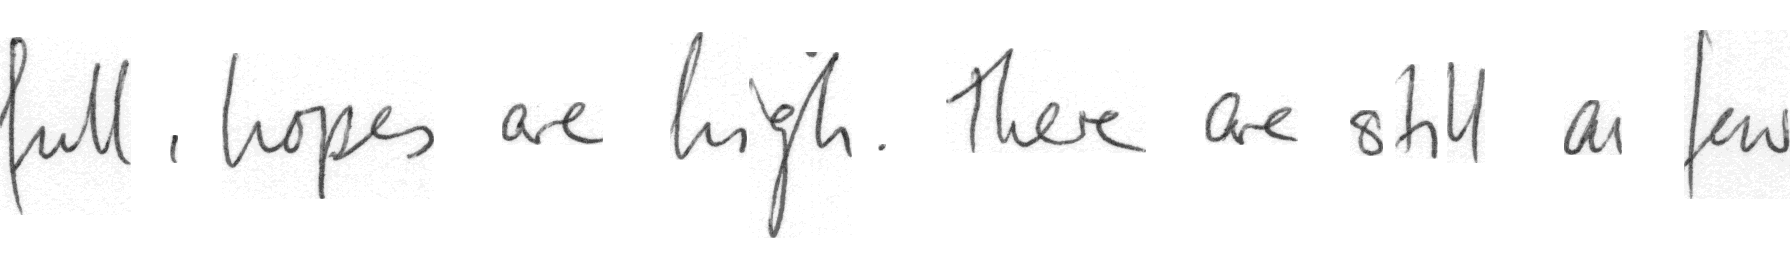 full, hopes are high. There are still a few